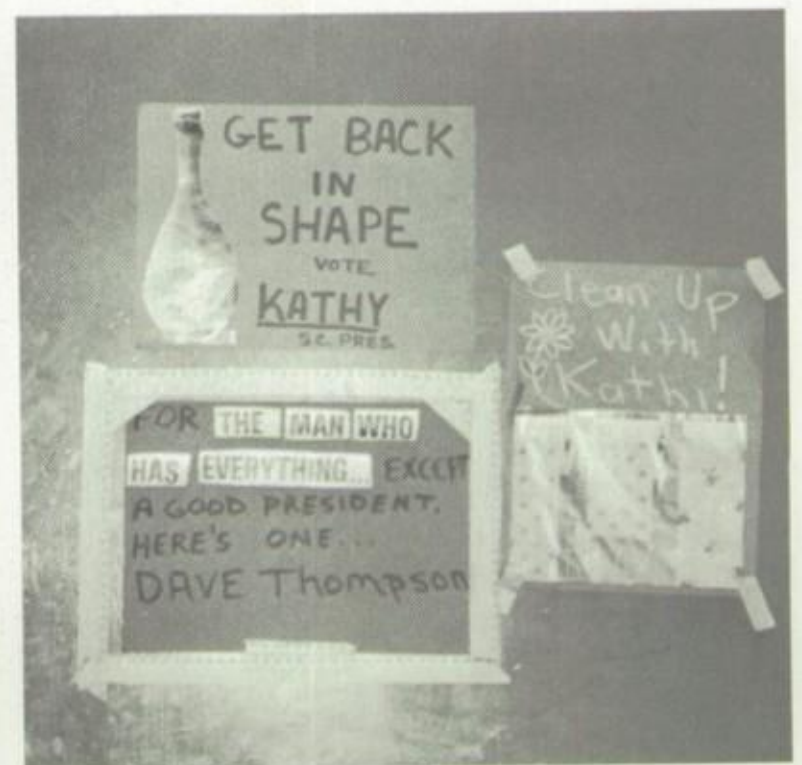 GET BACK
IN
SHAPE
VOTE
KATHY
S.C. PRES.
Clean Up
With
Kathi!
FOR THE MAN WHO
HAS EVERYTHING... EXCEPT
A GOOD PRESIDENT.
HERE'S ONE...
DAVE Thompson